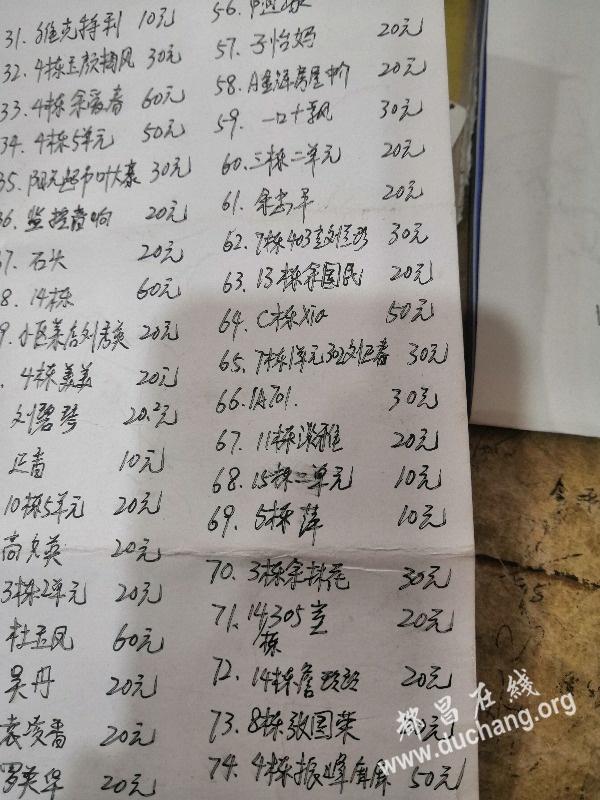 31. 维克特利 10元
32. 4栋王颜梅风 30元
33. 4栋余爱春 60元
34. 4栋5单元 50元
35. 阳光超市叶大泰 30元
36. 监控音响 20元
37. 石头 20元
38. 14栋 60元
39. 小区菜店刘秀英 20元
4栋美美 20元
刘碧琴 20.2元
正香 10元
10栋5单元 20元
高久英 20元
3栋2单元 20元
杜玉凤 60元
吴丹 20元
袁凌香 20元
罗英华 20元
56.
57. 子怡妈 20元
58. A鑫泽房屋中介 20元
59. 一口十飘 30元
60. 三栋二单元 20元
61. 余 20元
62. 7栋403室刘 30元
63. 13栋余国民 20元
64. C栋 50元
65. 7栋1单元302刘正春 30元
66. 1A701. 30元
67. 11栋淑雅 20元
68. 15栋二单元 10元
69. 5栋萍 10元
70. 3栋余林花 30元
71. 14栋305室 20元
72. 14栋詹 20元
73. 8栋张国荣 元
74. 4栋振峰 50元
都昌在线
www.duchang.org